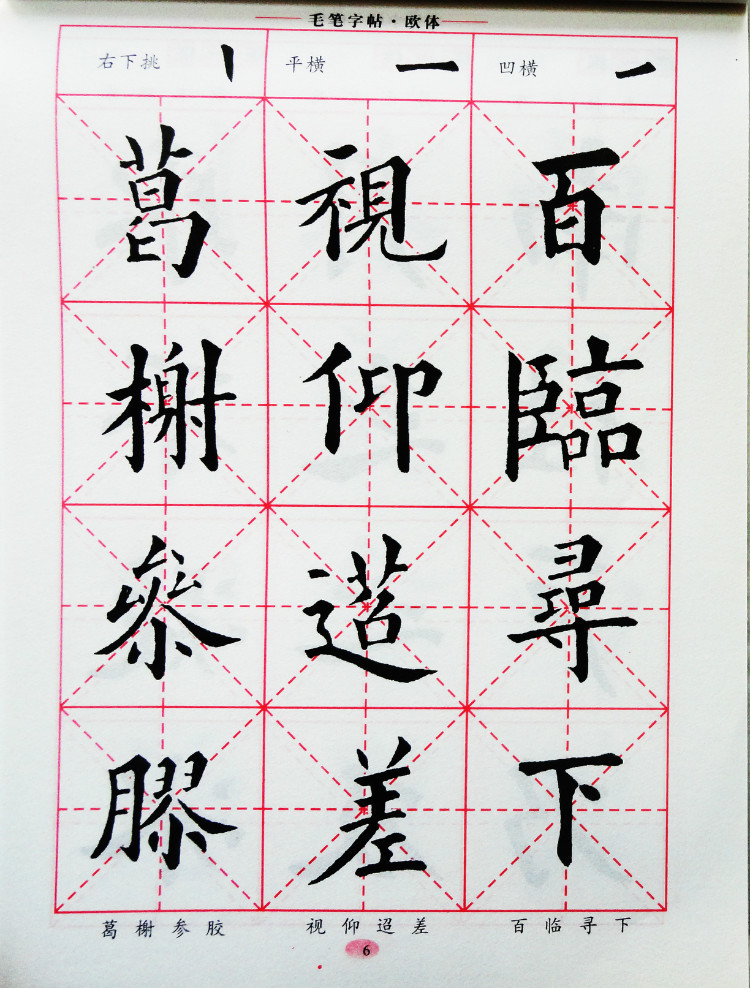 毛笔字帖·欧体
右下挑 平横 凹横
葛 視 百
榭 仰 臨
參 迢 尋
膠 差 下
葛榭参胶 视仰迢差 百临寻下
6